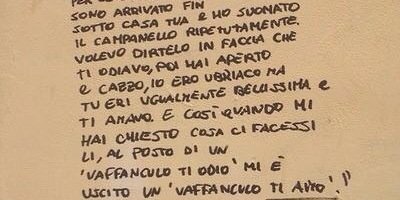 SONO ARRIVATO FIN
SOTTO CASA TUA E HO SUONATO
IL CAMPANELLO RIPETUTAMENTE.
VOLEVO DIRTELO IN FACCIA CHE
TI ODIAVO, POI HAI APERTO
E CAZZO, IO ERO UBRIACO MA
TU ERI UGUALMENTE BELLISSIMA E
TI AMAVO. E COSÌ QUANDO MI
HAI CHIESTO COSA CI FACESSI
LI, AL POSTO DI UN
'VAFFANCULO TI ODIO' MI È
USCITO UN 'VAFFANCULO TI AMO'!"